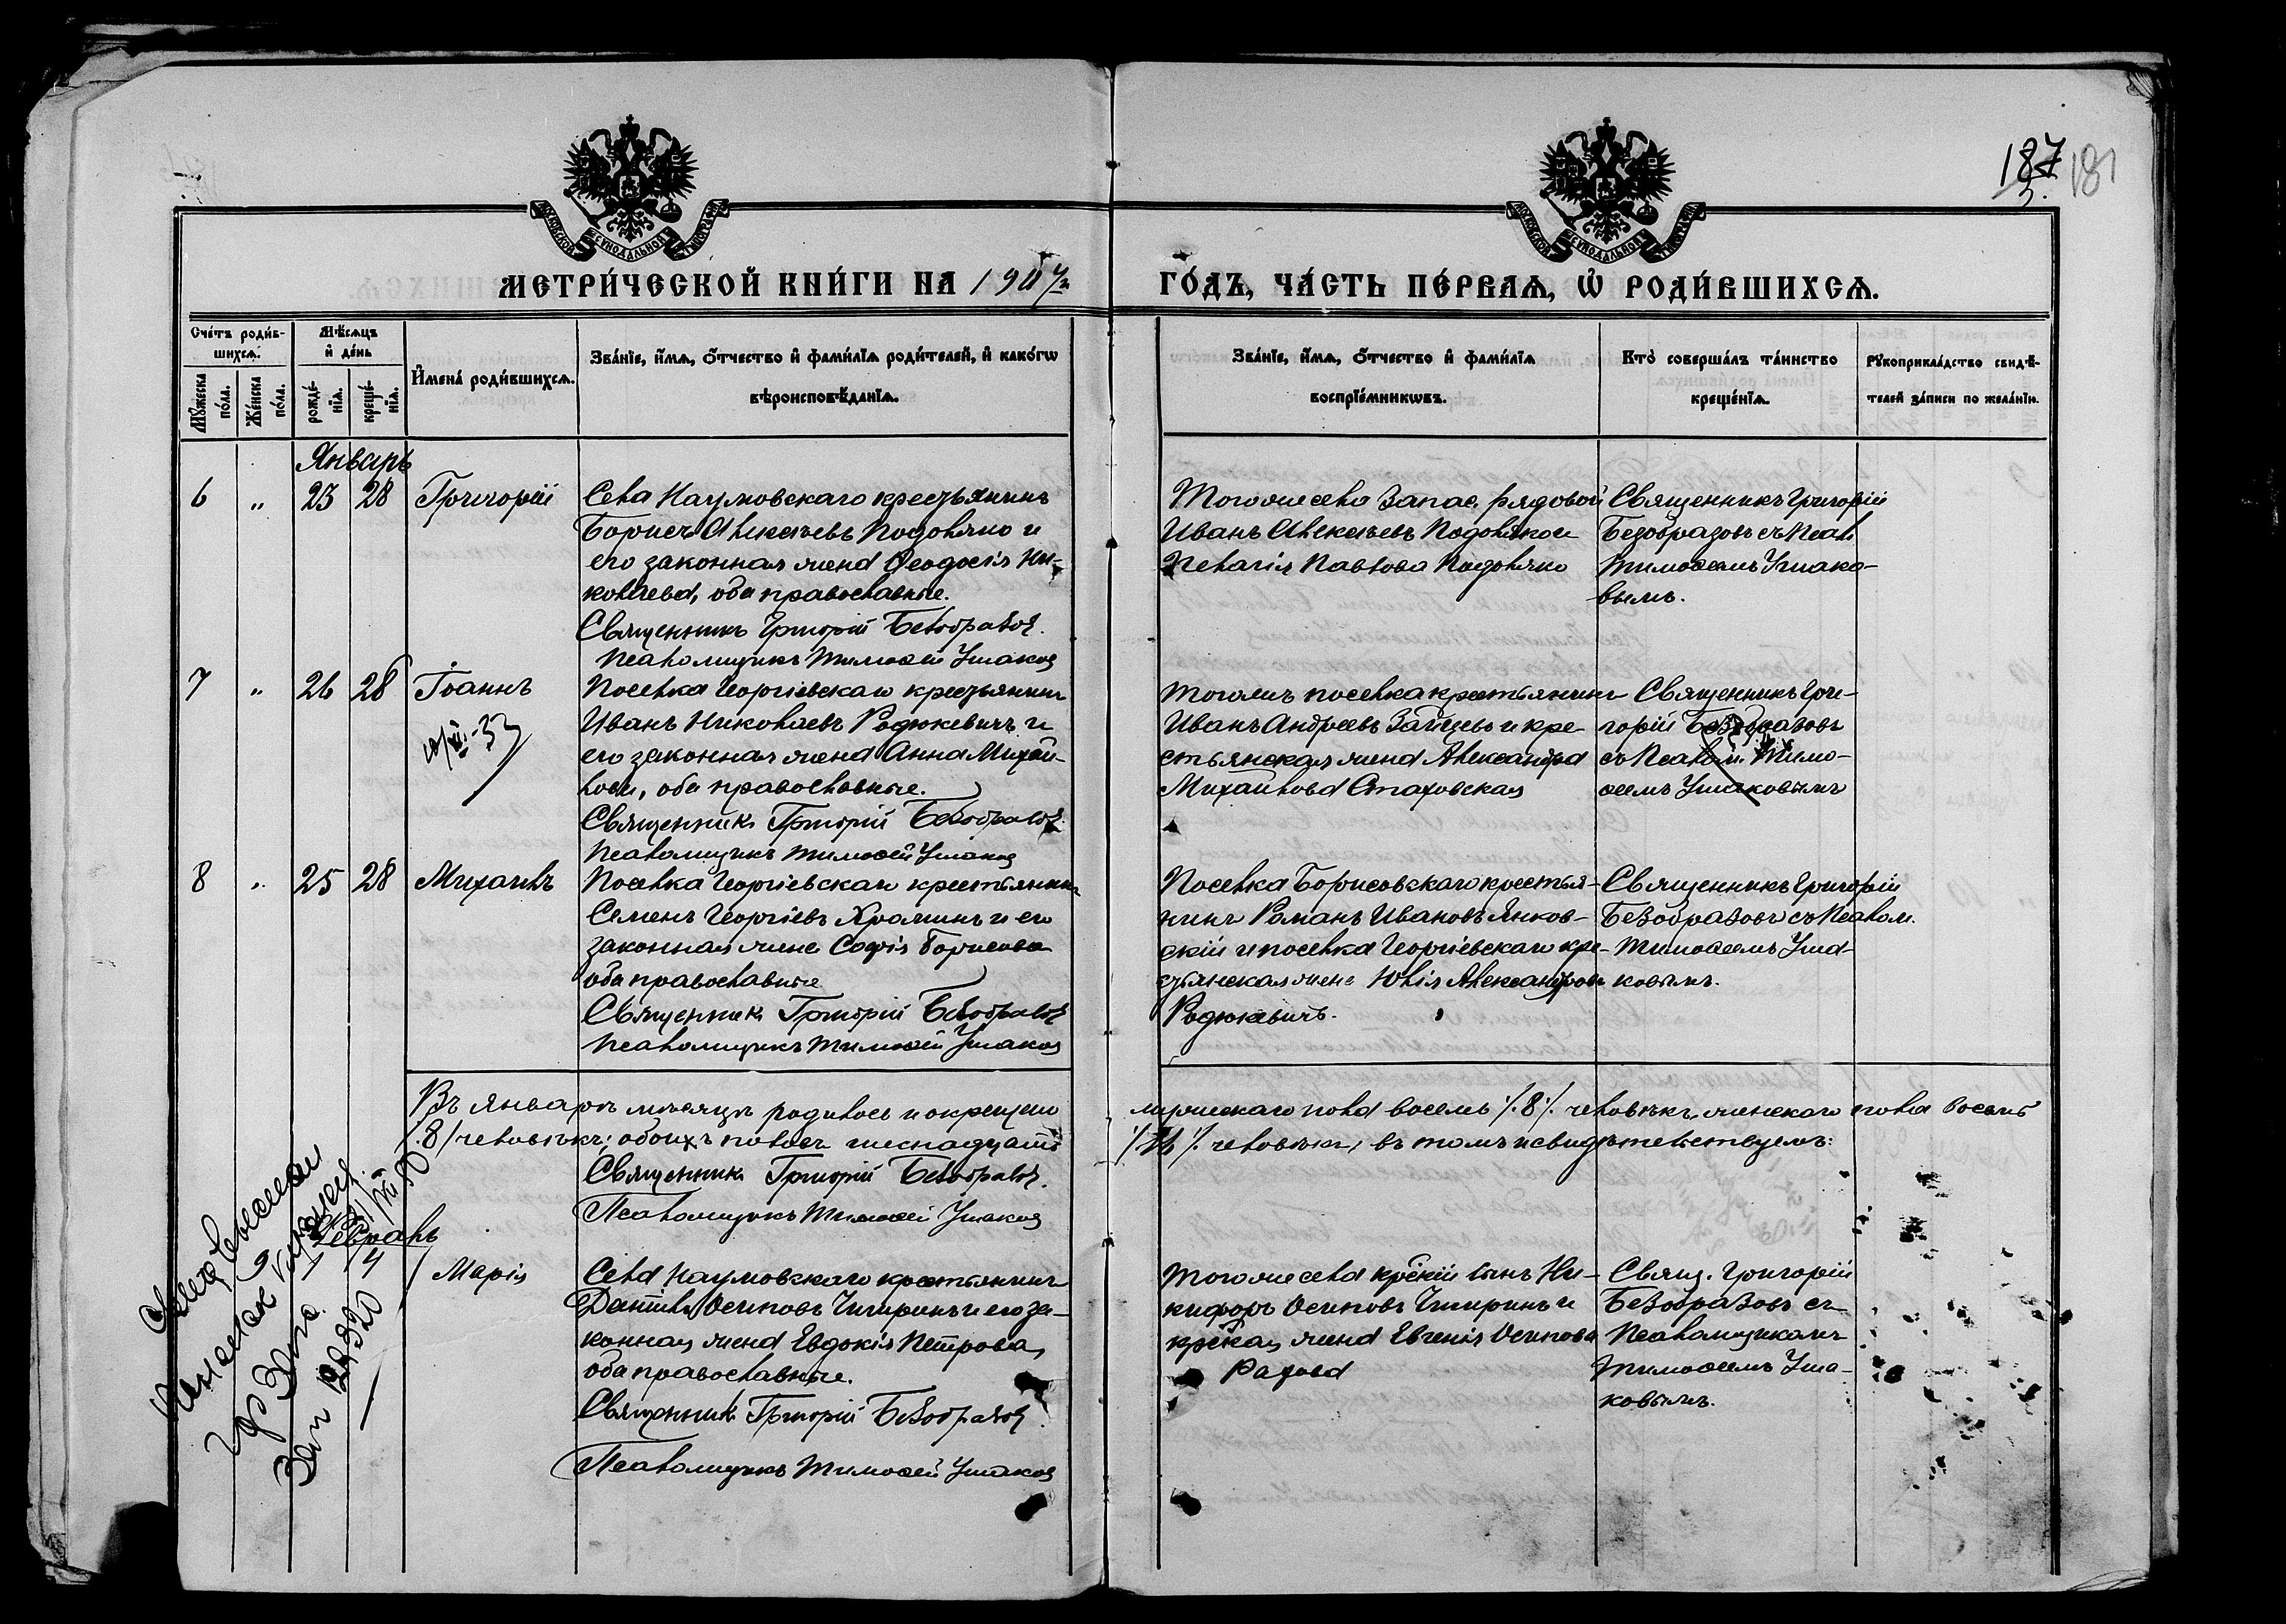 187 181
МЕТРИ́ЧЕСКОЙ КНИ́ГИ НА 1904 ГО́ДЪ, ЧА́СТЬ ПЕ́РВАѦ, Ѡ҆ РОДИ́ВШИХСѦ.
Сче́тъ роди́в-
шихсѧ.
Мѣ́сѧцъ
и҆ де́нь
Мꙋ́жеска по́ла.
Же́нска по́ла.
рожде́-
нїѧ.
креще́-
нїѧ.
И҆мена̀ роди́вшихсѧ.
Зва́нїе, и҆́мѧ, ѻ҆́тчество и҆ фами́лїѧ роди́телей, и҆ како́гѡ
вѣроисповѣ́данїѧ.
Зва́нїе, и҆́мѧ, ѻ҆́тчество и҆ фами́лїѧ
воспрїе́мникѡвъ.
Кто̀ соверша́лъ та́инство
креще́нїѧ.
Рꙋкоприкла́дство свидѣ́-
телей за́писи по жела́нїю.
Январь
6 " 23 28 Григорій
Села Наумовскаго крестьянинъ
Борисъ Алексѣевъ Подоляко и
его законная жена Ѳеодосія Ни-
колаева, оба православные.
Священникъ Григорій Безобразов
Псаломщикъ Тимоѳей Ушаков
Тогоже села запас. рядовой
Иванъ Алексѣевъ Подоляко и
Пелагія Павлова Подоляко
Священникъ Григорій
Безобразовъ съ Псал.
Тимоѳеемъ Ушако-
вымъ.
7 " 26 28 Іоаннъ
Поселка Георгіевскаго крестьянинъ
Иванъ Николаевъ Родюкевичъ и
его законная жена Анна Михай-
лова, оба православные.
Священникъ Григорій Безобразов
Псаломщикъ Тимоѳей Ушаков
Тогожъ поселка крестьянинъ
Иванъ Андреевъ Зайцевъ и кре-
стьянская жена Александра
Михайлова Стаховская
Священникъ Гри-
горій Безобразовъ
съ Псалом. Тимо-
ѳеемъ Ушаковымъ
8 " 25 28 Михаилъ
Поселка Георгіевскаго крестьянинъ
Семенъ Георгіевъ Храминъ и его
законная жена Софія Борисова
оба православные
Священникъ Григорій Безобразов
Псаломщикъ Тимоѳей Ушаков
Поселка Борисовскаго крестья-
нинъ Романъ Ивановъ Янков-
скій и поселка Георгіевскаго кре-
стьянская жена Юлія Александрова
Родюкевичъ.
Священникъ Григорій
Безобразовъ съ Псалом.
Тимоѳеемъ Уша-
ковымъ.
Въ январѣ мѣсяцѣ родилось и окрещено мужескаго пола восемь /.8./ человѣкъ, женскаго пола восемь
/.8/ человѣкъ; обоихъ половъ шеснадцать /.16./ человѣкъ, въ томъ и свидѣтельствуемъ:
Священникъ Григорій Безобразов.
Псаломщикъ Тимоѳей Ушаков
Февраль
4 Марія
Села Наумовскаго крестьянинъ
Даніилъ Осиповъ Чигиринъ и его за-
конная жена Евдокія Петрова,
оба православные.
Священникъ Григорій Безобразов
Псаломщикъ Тимоѳей Ушаков
Тогоже села кр-скій сынъ Ни-
кифоръ Осиповъ Чигиринъ и
кр-ская жена Евгенія Осипова
Свящ. Григорій
Безобразовъ съ
Псаломщикомъ
Тимоѳеемъ Уша-
ковымъ.